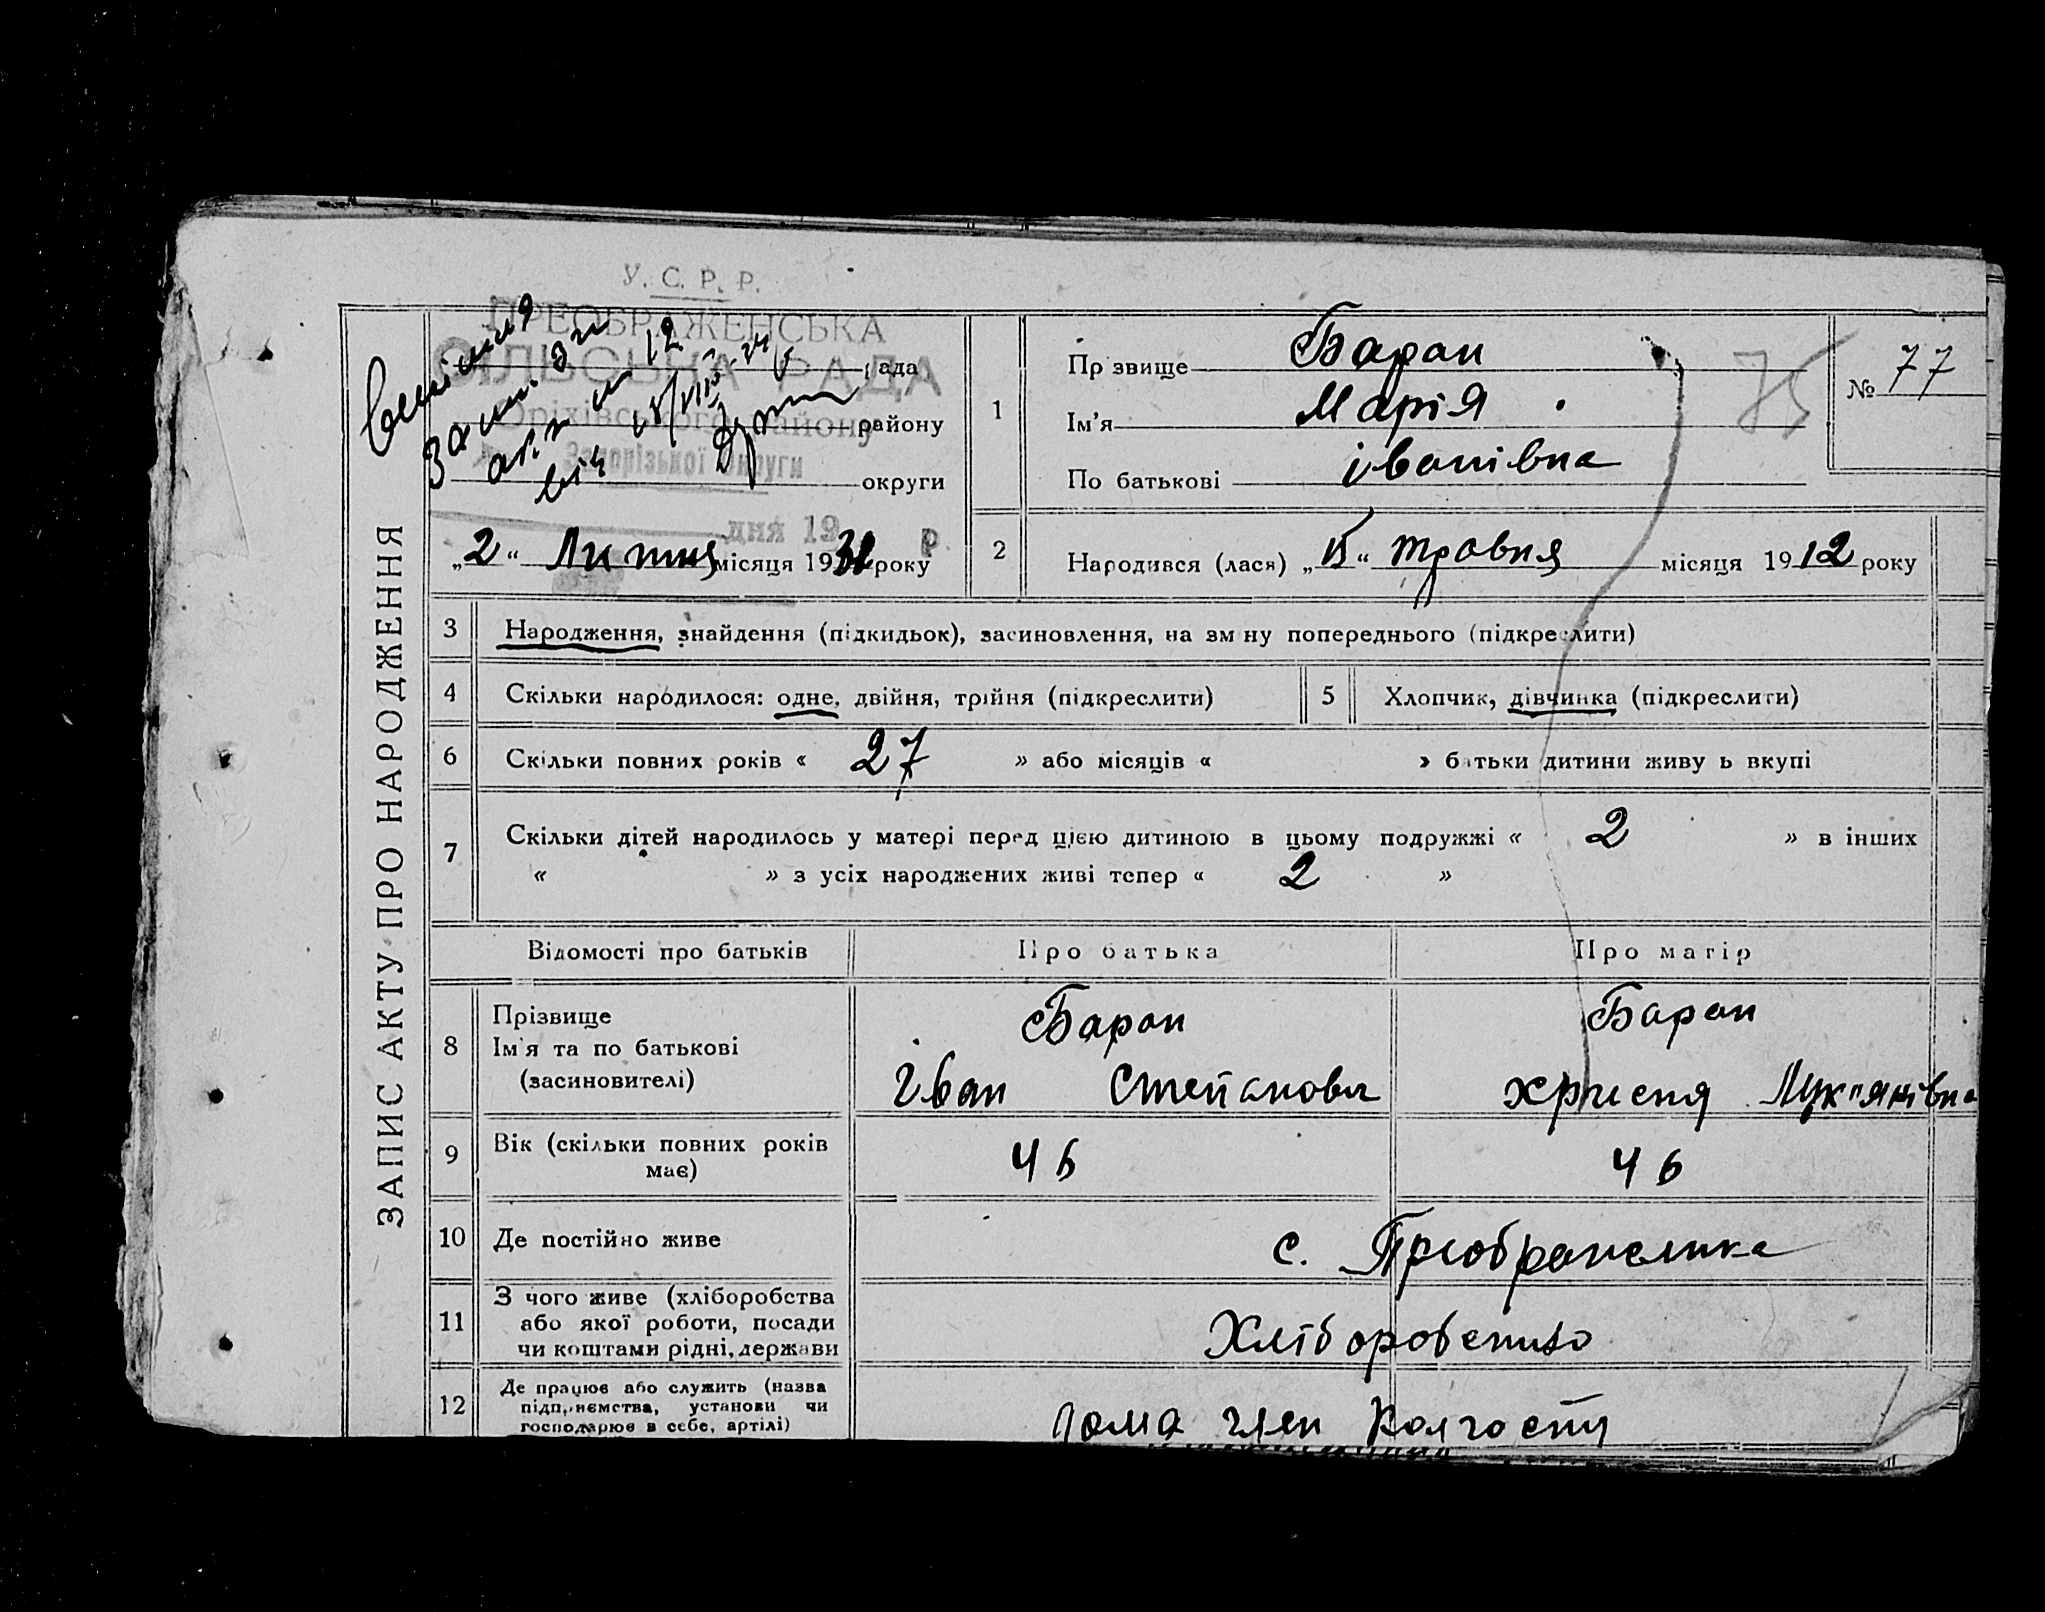 У. С. Р. Р.
ПРЕОБРАЖЕНСЬКА
СІЛЬСЬКА РАДА
Оріхівського району
Запорізької округи
рада
району
округи
дня 19 р
„2“ Литня місяця 1931 року
ЗАПИС АКТУ ПРО НАРОДЖЕННЯ
1
Пр звище Баран
Ім'я Марія
По батькові івонівна
75
№ 77
2
Народився (лася) „15“ травня місяця 1912 року
3 Народження, знайдення (підкидьок), засиновлення, на зм ну попереднього (підкреслити)
4 Скільки народилося: одне, двійня, трійня (підкреслити) 5 Хлопчик, дівчинка (підкреслити)
6 Скільки повних років « 27 » або місяців « » батьки дитини живу ь вкупі
7 Скільки дітей народилось у матері перед цією дитиною в цьому подружжі « 2 » в інших
« » з усіх народжених живі тепер « 2 »
Відомості про батьків Про батька Про матір
8 Прізвище Баран Баран
Ім'я та по батькові Іван Степанович Христя Лук"янівна
(засиновителі)
9 Вік (скільки повних років має) 46 46
10 Де постійно живе с. Преображенка
11 З чого живе (хліборобства
або якої роботи, посади Хліборобство
чи коштами рідні, держави
12 Де працює або служить (назва
підприємства, установи чи дома член Колгоспу
господарює в себе, артілі)